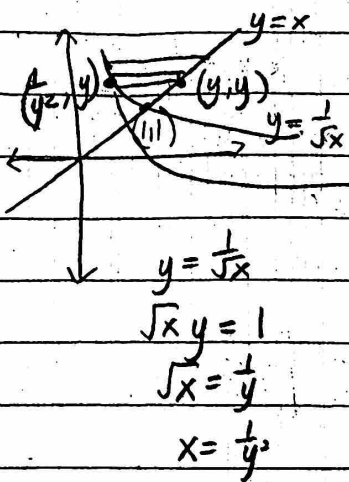 y = x
(1/y², y) (y, y)
(1,1) y = 1/√x
y = 1/√x
√x y = 1
√x = 1/y
x = 1/y²